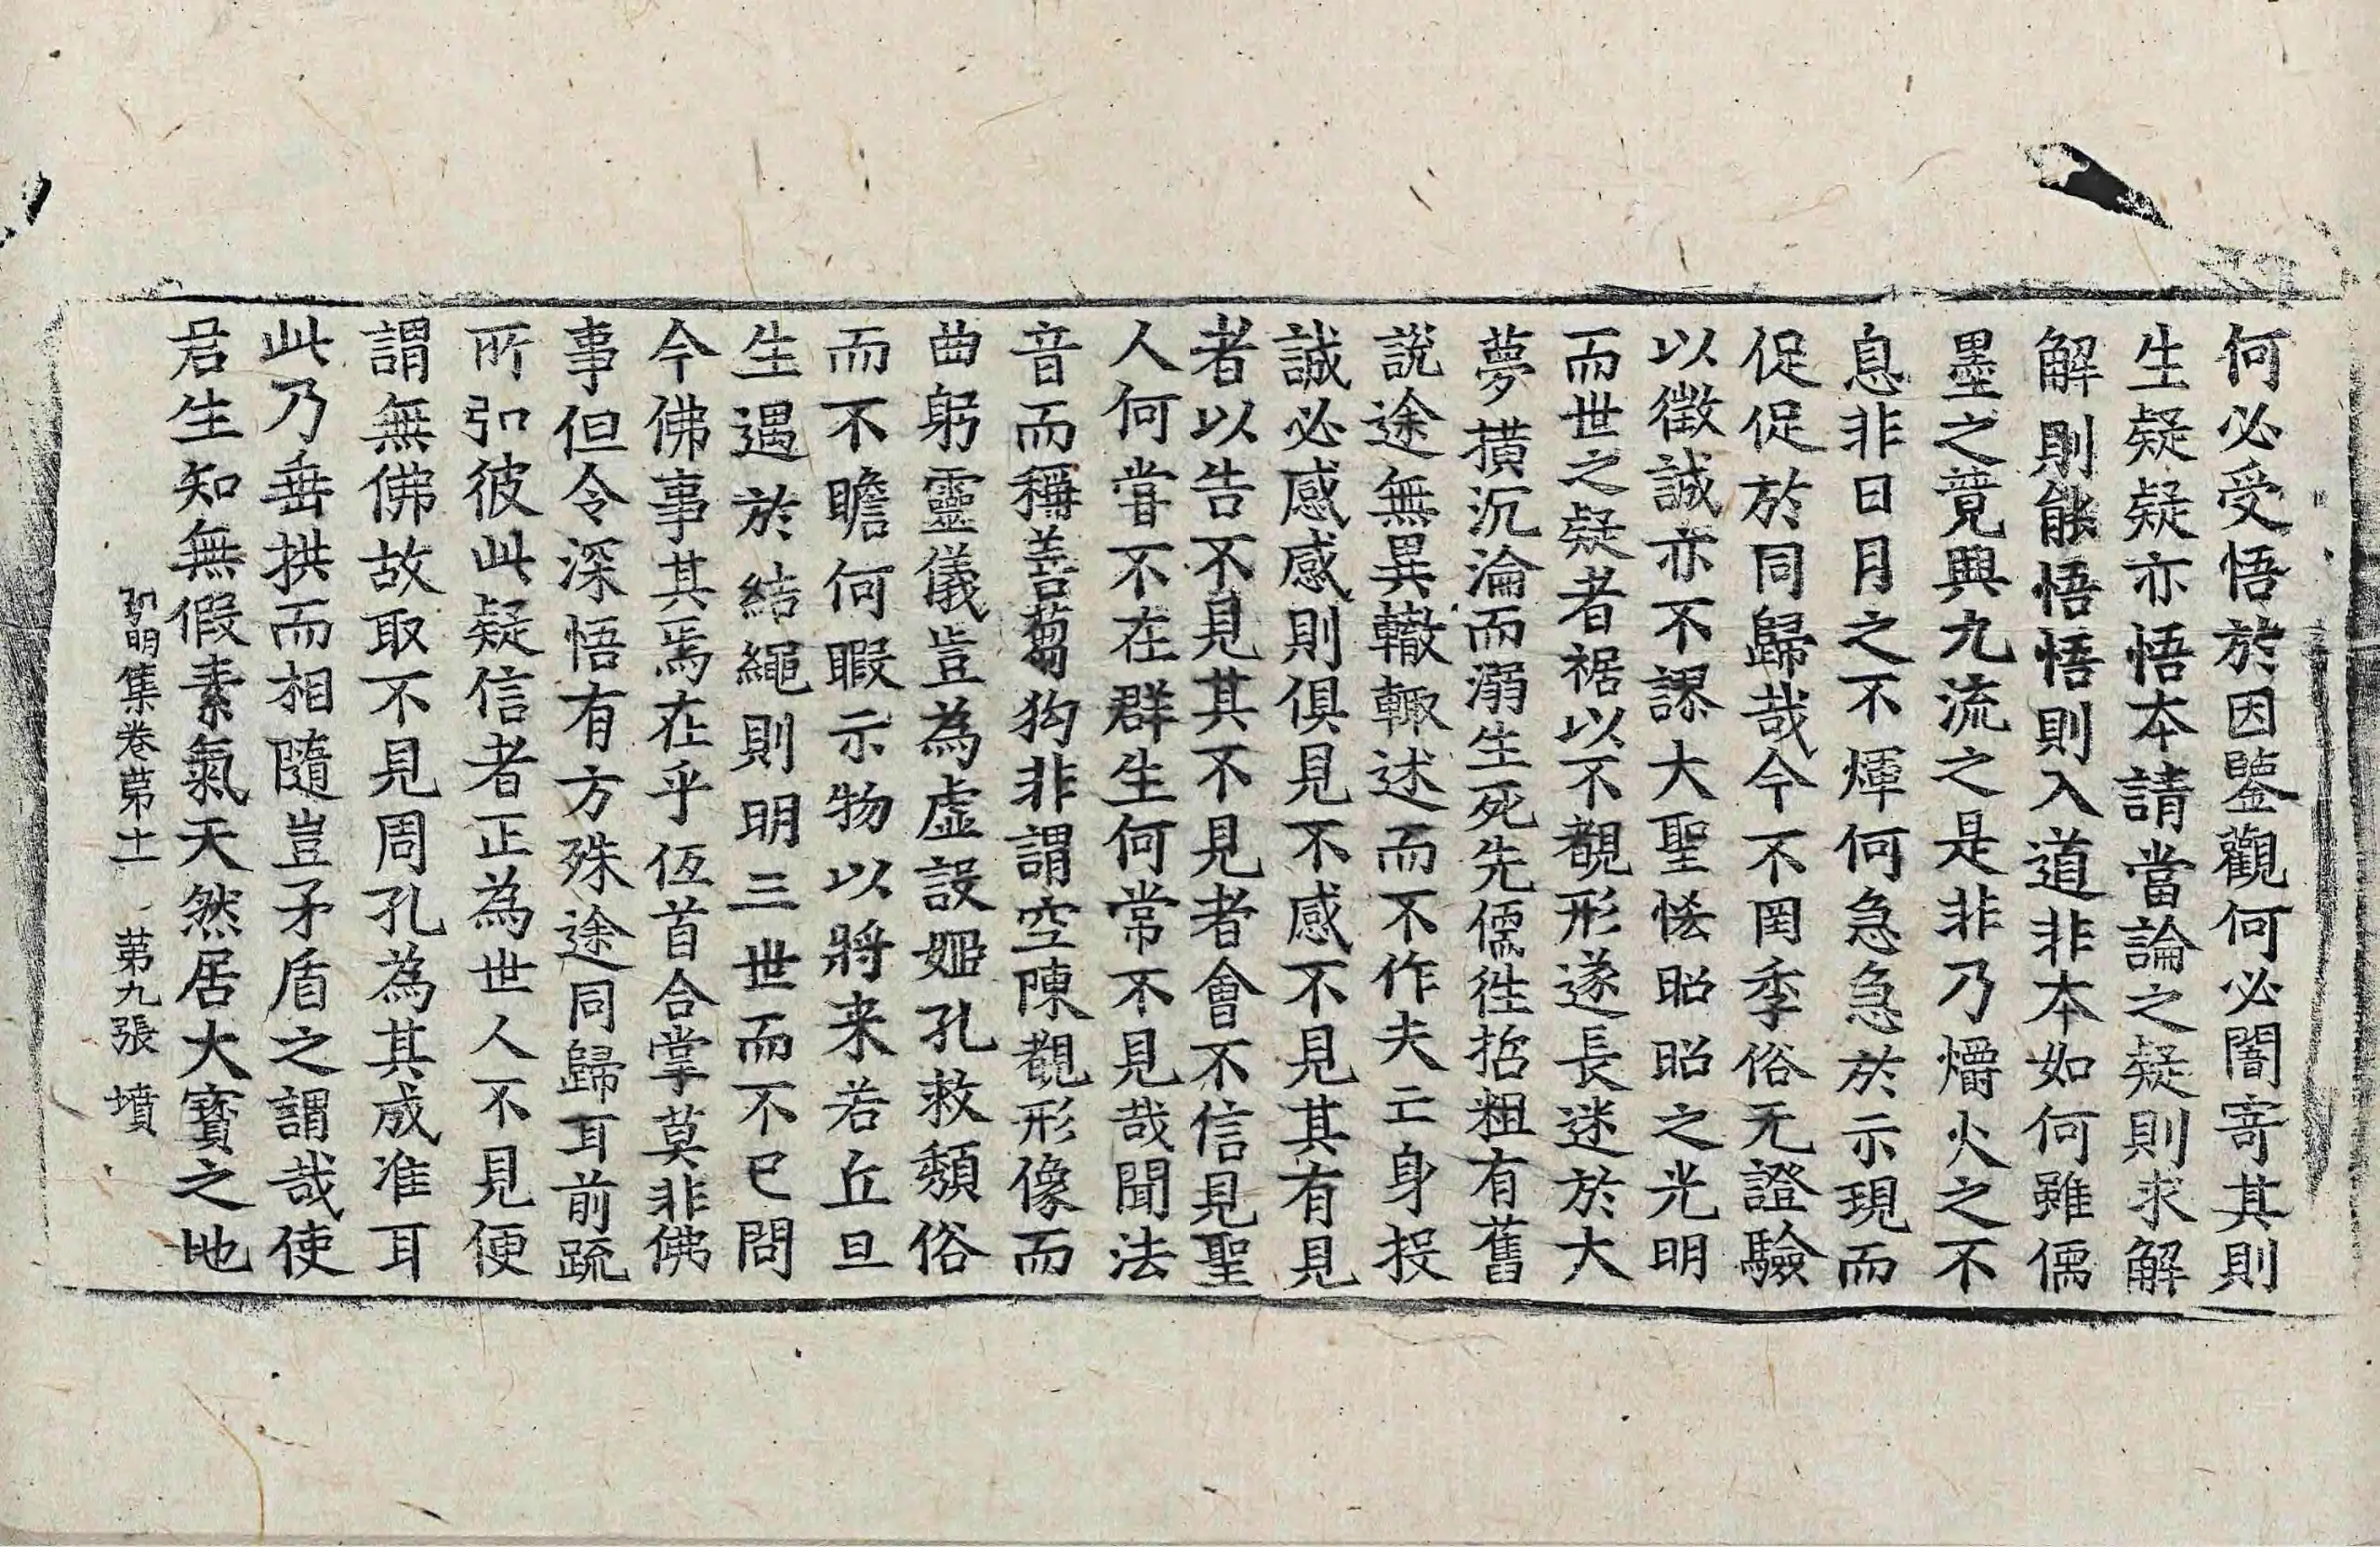 何必受悟於因鑒觀何必闇寄其則
生疑疑亦悟本請當論之疑則求解
解則能悟悟則入道非本如何雖儒
墨之竟興九流之是非乃爝火之不
息非日月之不煇何急急於示現而
促促於同歸哉今不罔季俗无證驗
以徵誠亦不謬大聖恡昭昭之光明
而世之疑者裾以不覩形遂長迷於大
夢橫沉淪而溺生死先儒徃哲粗有舊
說途無異轍輙述而不作夫亡身投
誠必感感則俱見不感不見其有見
者以告不見其不見者會不信見聖
人何甞不在群生何常不見哉聞法
音而稱善蒭狗非謂空陳覩形像而
曲躬靈儀豈為虛設姬孔救頹俗
而不瞻何暇示物以將来若丘旦
生遇於結繩則明三世而不已問
今佛事其焉在乎伍首合掌莫非佛
事但令深悟有方殊途同歸耳前疏
所引彼此疑信者正為世人不見便
謂無佛故取不見周孔為其成准耳
此乃垂拱而相隨豈矛盾之謂哉使
君生知無假素氣天然居大寶之地
弘明集卷苐十一 苐九張 墳